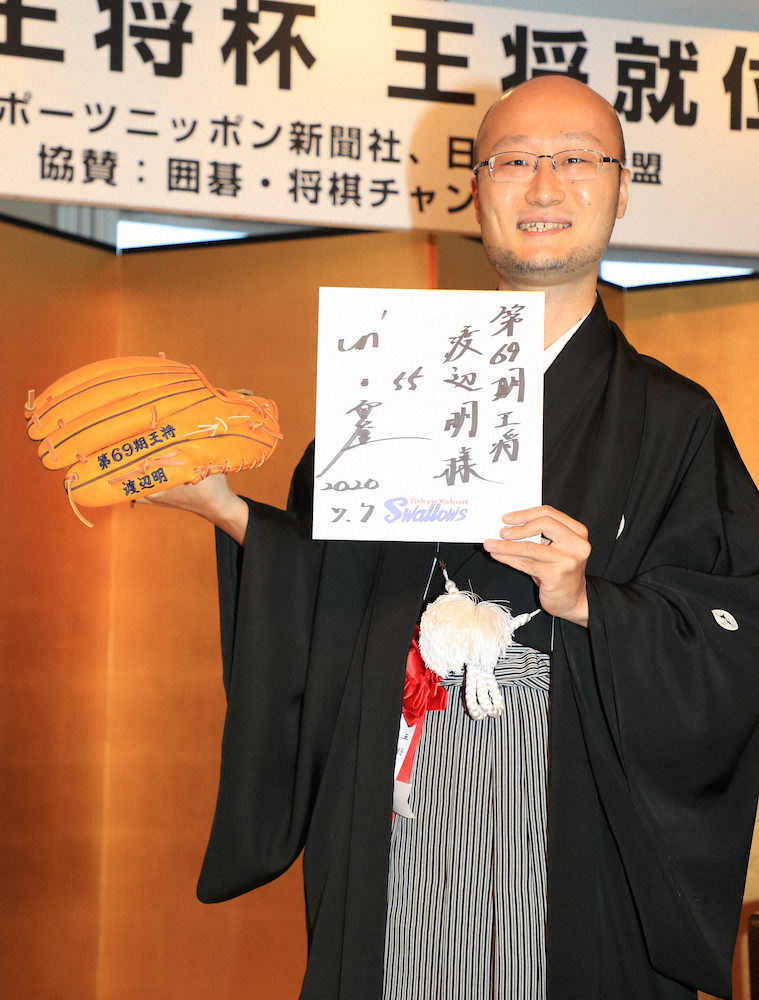 王将杯 王将就位
ポーツニッポン新聞社、日 盟
協賛：囲碁・将棋チャン
第69期王将
渡辺明様
55
2020
7.7
Tokyo Yakult
Swallows
第69期王将
渡辺明